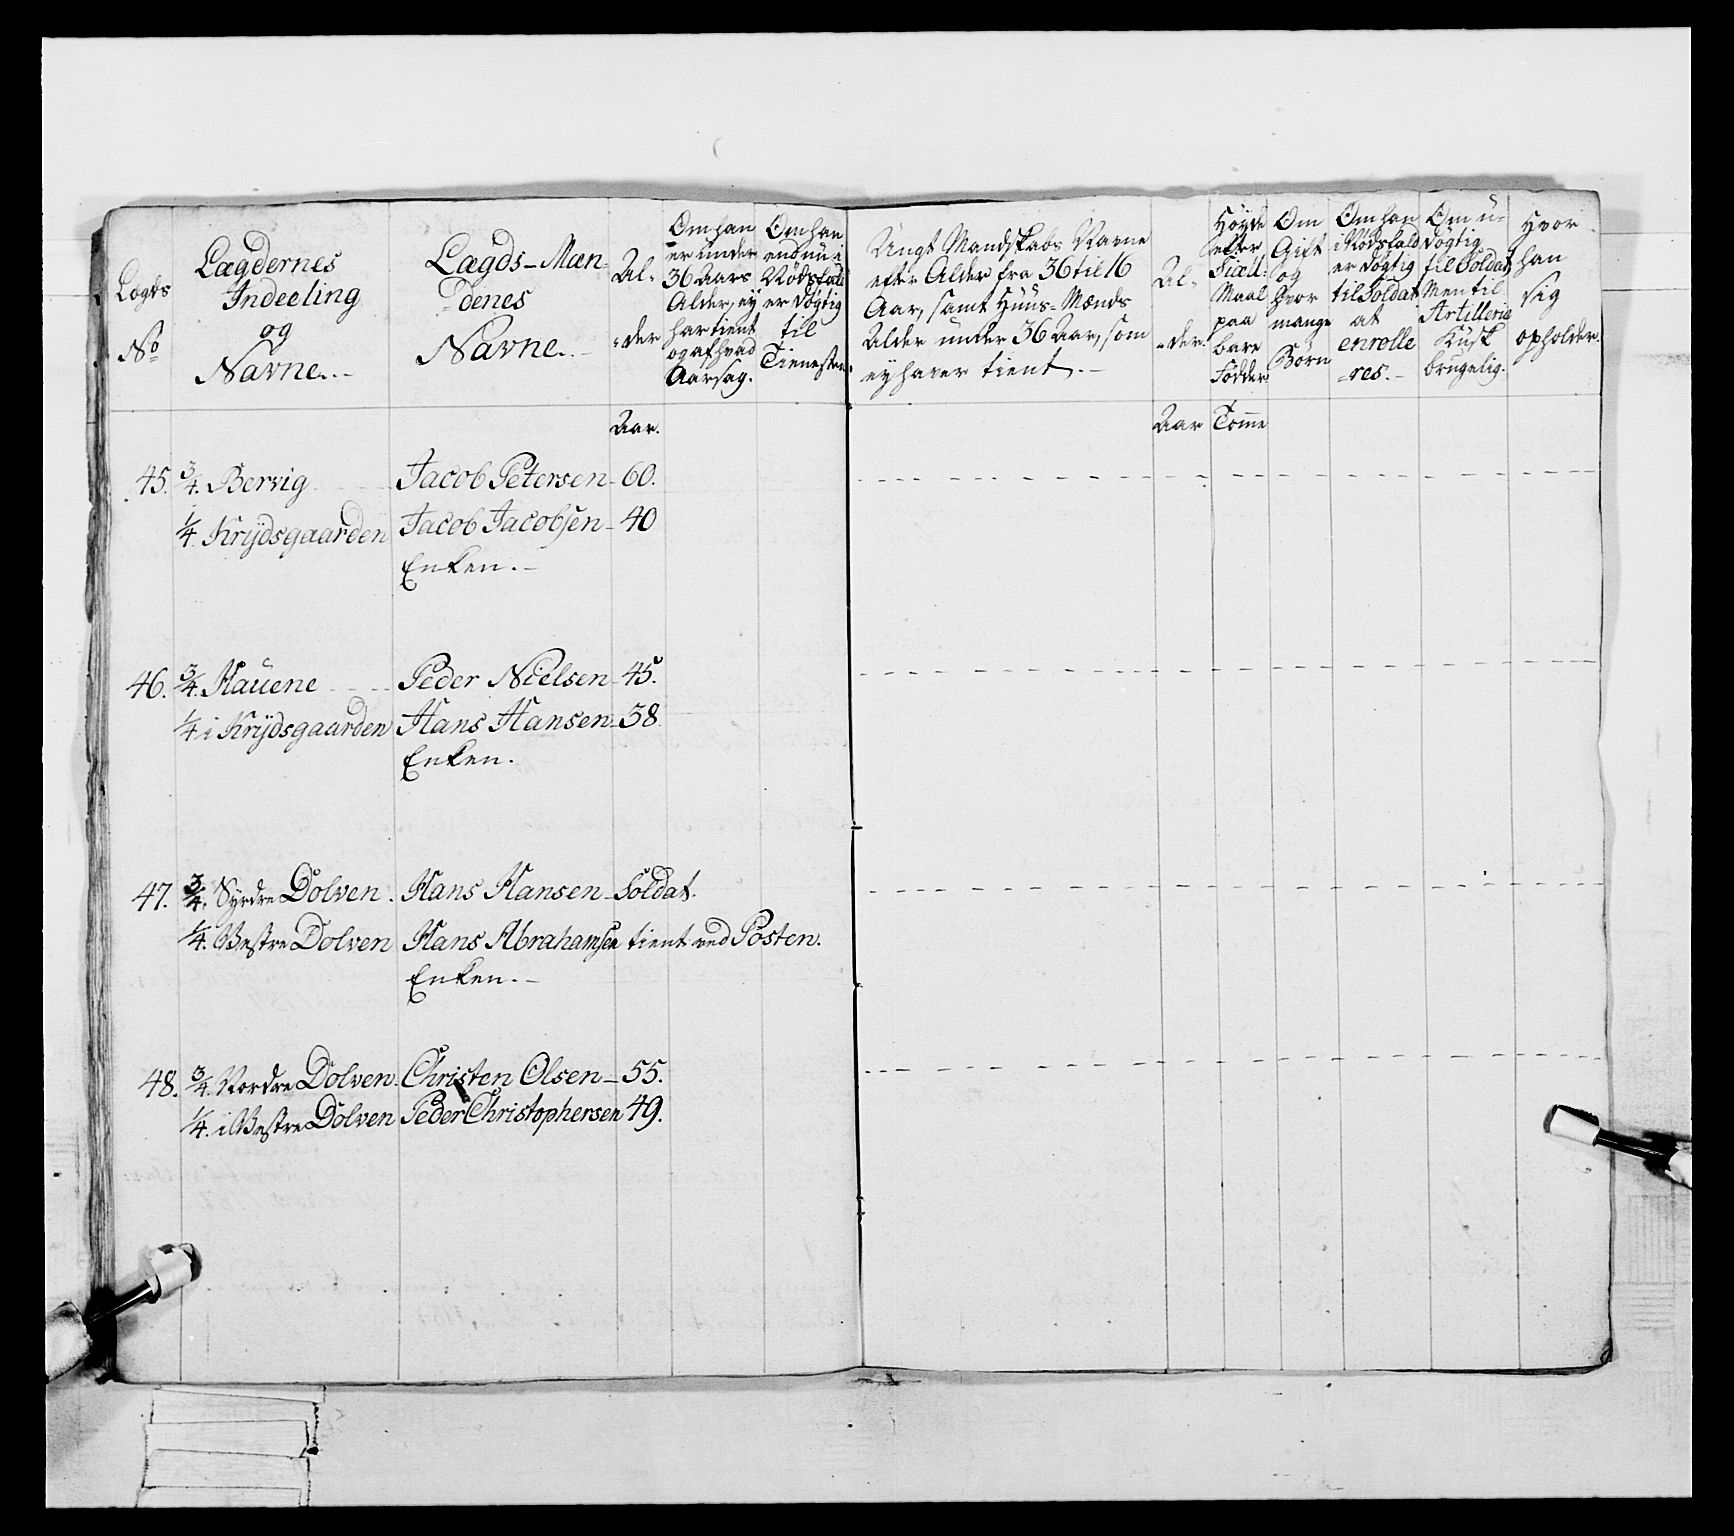 Lægds
No
Lægdernes
Indeeling
og
Navne.
Lægds-Mæn-
denes
Navne.
Al-
-der
Om han
er under
36 Aars
Alder, ey
har tient
og af hvad
Aarsag.
Om han
endnu i
Nødsfald
er døgtig
til
Tienesten.
Ungt Mandskabs Navne
efter Alder fra 36 til 16
Aar, samt Huus-Mænds
Alder under 36 Aar, som
ey haver tient.
Al-
-der.
Høyde
efter
Siæll:
Maal
paa
bare
Födder
Om
Gift
og
hvor
mange
Börn
Om han
i Nödsfald
er dögtig
til Soldat
at
enrolle
-res.
Om u-
dögtig
til Soldat
Men til
Artillerie
Kusk
brugelig.
Hvor
han
sig
opholder.
Aar.
Aar Tomme
45. 3/4. Bervig Jacob Petersen 60.
1/4. Krijdsgaarden Jacob Jacobsen 40
Enken.
46. 3/4. Hauene Peder Nielsen 45.
1/4 i Krijdsgaarden Hans Hansen 38
Enken.
47. 3/4. Syndre Dolven. Hans Hansen Soldat.
1/4. Westre Dolven Hans Abrahamsen tient ved Posten.
Enken.
48. 3/4. Nordre Dolven. Christen Olsen 55.
1/4. i Westre Dolven Peder Christophersen 49.